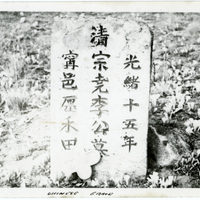 光緒十五年
清宗尭李公墓
甯邑愿禾田
CHINESE GRAVE